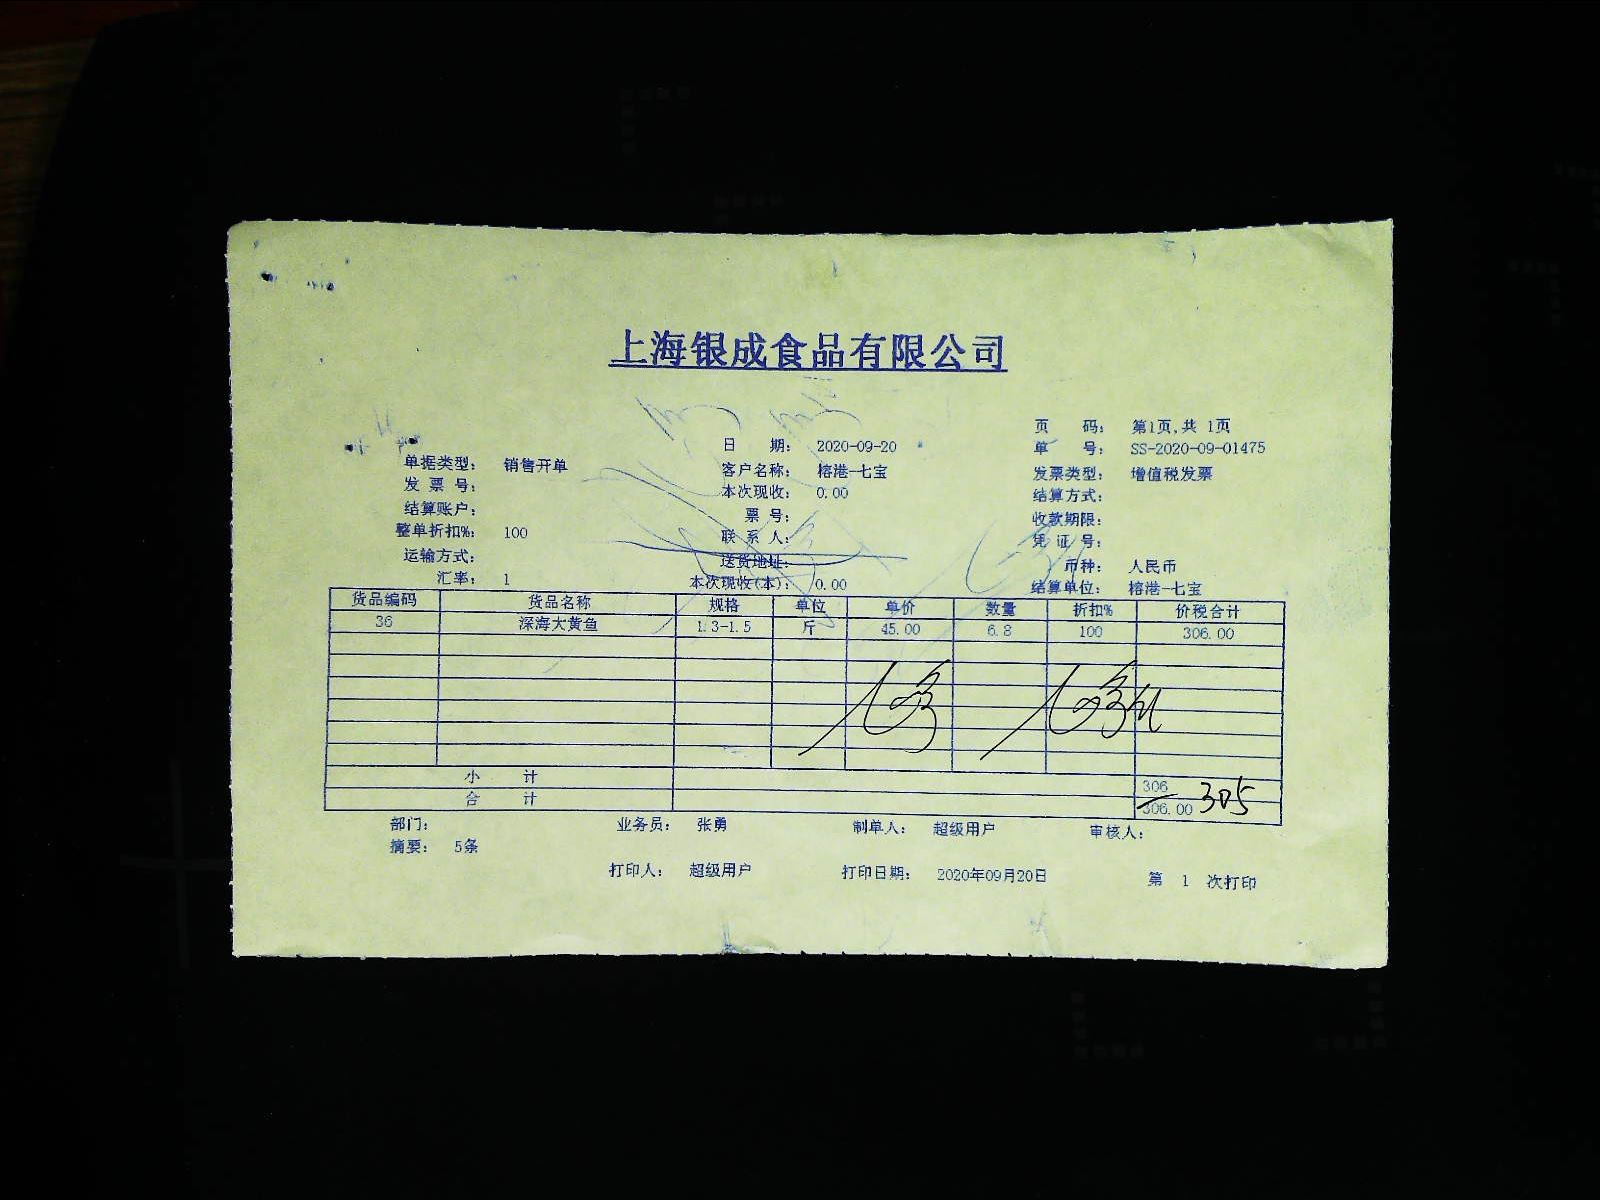 上海银成食品有限公司
页 码： 第1页,共 1页
日 期： 2020-09-20
单 号： SS-2020-09-01475
单据类型： 销售开单
客户名称： 榕港-七宝
发票类型： 增值税发票
发 票 号：
本次现收： 0.00
结算方式：
结算账户：
票 号：
收款期限：
整单折扣%： 100
联 系 人：
凭 证 号：
运输方式：
送货地址：
币种： 人民币
汇率： 1
本次现收(本)： 0.00
结算单位： 榕港-七宝
货品编码 货品名称 规格 单位 单价 数量 折扣% 价税合计
36 深海大黄鱼 1.3-1.5 斤 45.00 6.8 100 306.00
小 计 306
合 计 306.00 305
部门： 业务员： 张勇 制单人： 超级用户 审核人：
摘要： 5条
打印人： 超级用户 打印日期： 2020年09月20日 第 1 次打印